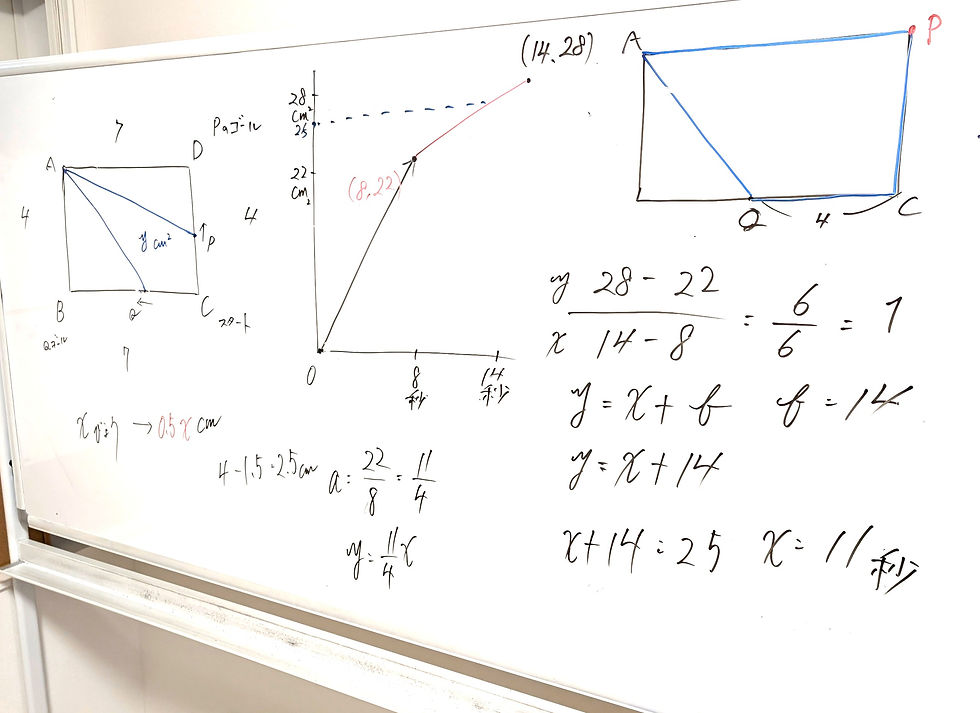 7
Pのゴール
A
D
4
4
y cm²
P
B
Q
C
スタート
Qゴール
7
x 秒 → 0.5x cm
4-1.5=2.5cm
(14,28)
28
cm²
25
22
cm²
(8,22)
0
8
秒
14
秒
a = 22/8 = 11/4
y = 11/4 x
A
P
Q
4
C
y 28-22
x 14-8
= 6/6 = 1
y = x + b b = 14
y = x + 14
x + 14 = 25 x = 11 秒